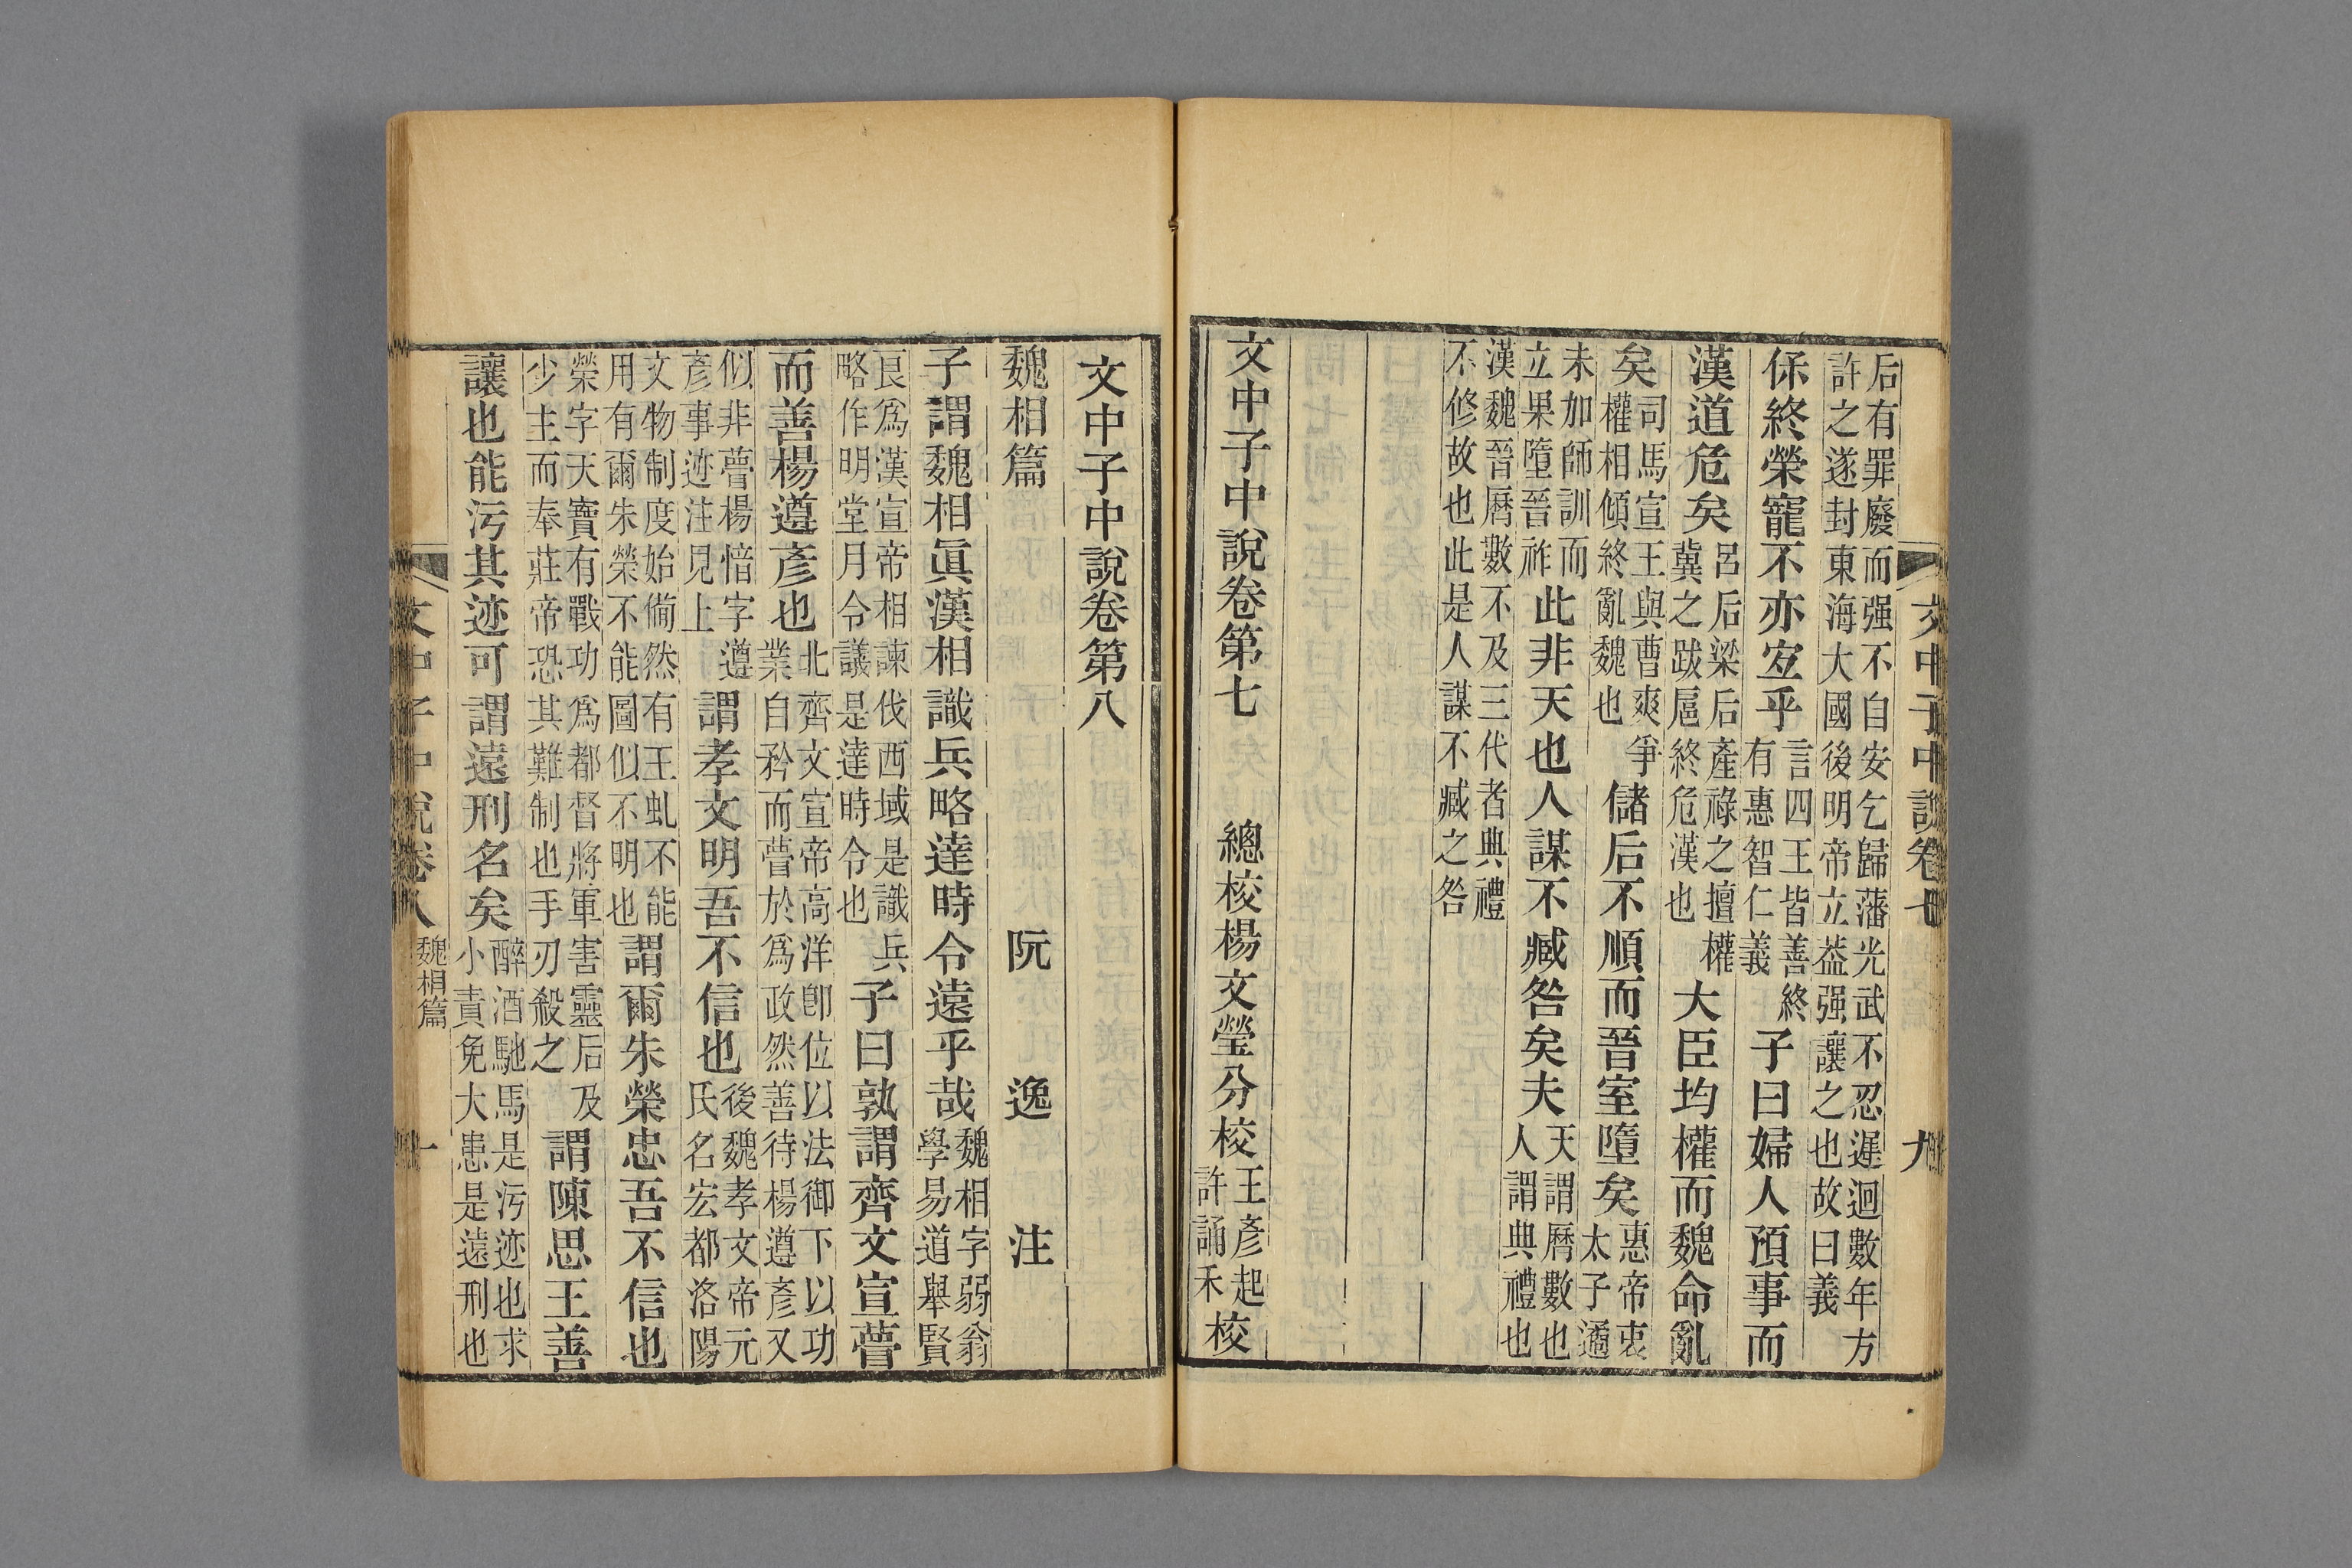 后有罪廢而强不自安乞歸藩光武不忍遲迴數年方
許之遂封東海大國後明帝立益强讓之也故曰義
保終榮寵不亦宐乎言四王皆善終有惠智仁義子曰婦人預事而
漢道危矣呂后梁后產祿之擅權冀之跋扈終危漢也大臣均權而魏命亂
矣司馬宣王與曹爽爭權相傾終亂魏也儲后不順而晉室墮矣惠帝衷太子遹
未加師訓而立果墮晉祚此非天也人謀不臧咎矣夫天謂曆數也人謂典禮也
漢魏晉曆數不及三代者典禮
不修故也此是人謀不臧之咎
文中子中說卷第七 總校楊文瑩分校王彥起許誦禾校
文中子中說卷七 九
文中子中說卷第八
魏相篇 阮 逸 注
子謂魏相眞漢相識兵略達時令遠乎哉魏相字弱翁學易道舉賢
良爲漢宣帝相諫伐西域是識兵略作明堂月令議是達時令也子曰孰謂齊文宣瞢
而善楊遵彥也北齊文宣帝高洋卽位以法御下以功業自矜而瞢於爲政然善待楊遵彥又
似非瞢楊愔字遵彥事迹注見上謂孝文明吾不信也後魏孝文帝元氏名宏都洛陽
文物制度始備然有王虬不能用有爾朱榮不能圖似不明也謂爾朱榮忠吾不信也
榮字天寶有戰功爲都督將軍害靈后及少主而奉莊帝恐其難制也手刃殺之謂陳思王善
讓也能污其迹可謂遠刑名矣醉酒馳馬是污迹也求小責免大患是遠刑也
文中子中說卷八 魏相篇 一